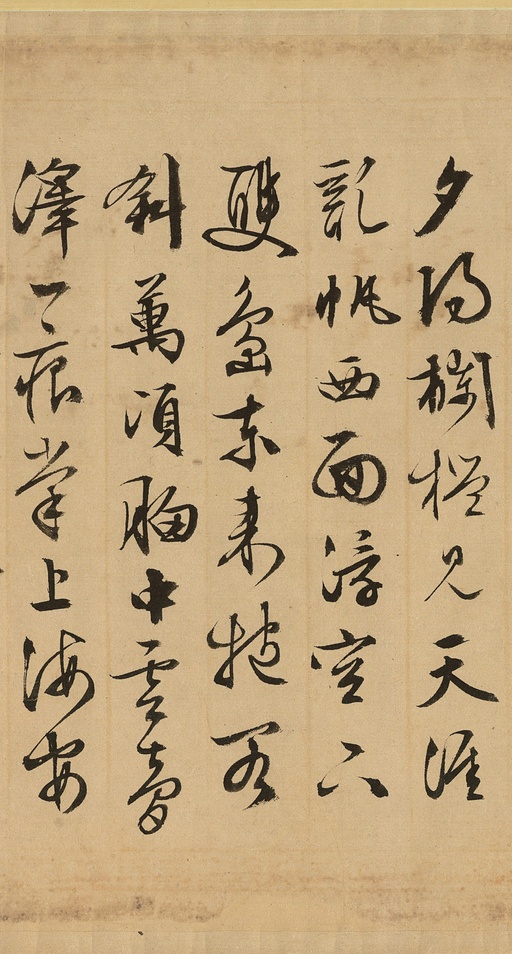 夕陽欄檻見天涯
亂帆西面浮空下
雙島東來
斜萬頃胸中雲夢
澤一痕掌上海安